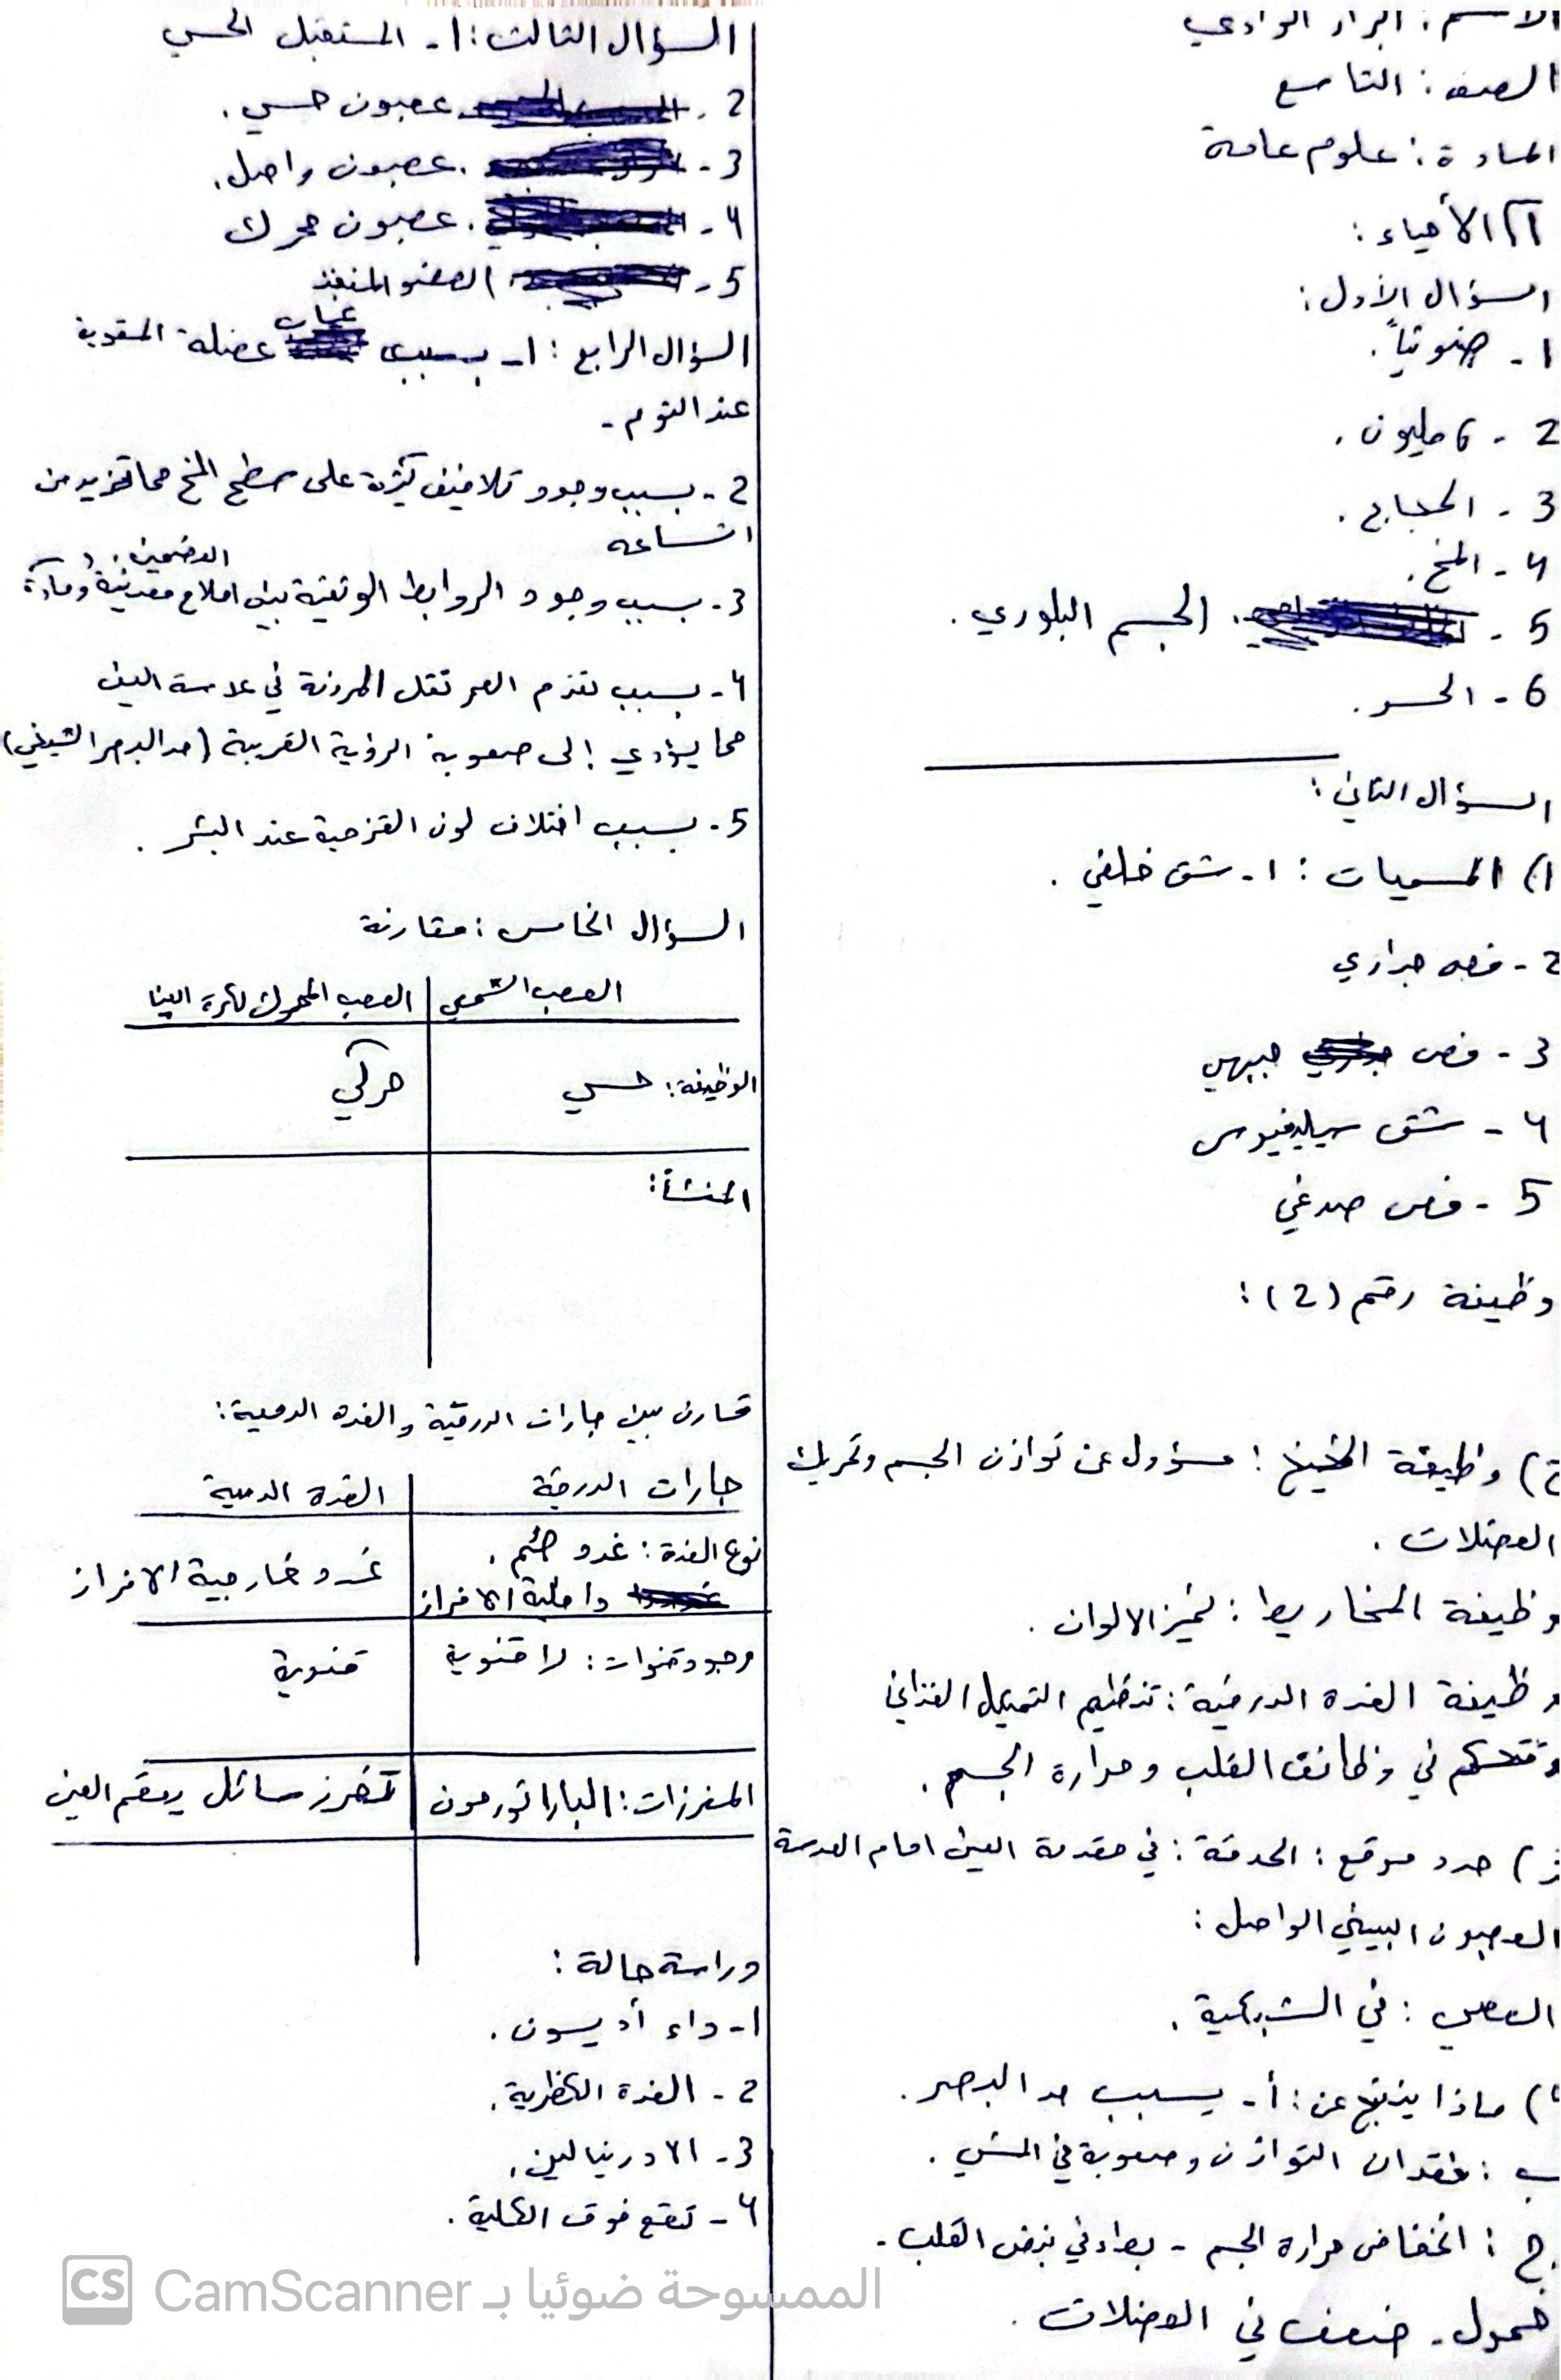 الاسم: ابرار الوادعي
الصف: التاسع
المادة: علوم عامة
الأحياء:
السؤال الأول:
1 - ضوئياً.
2 - 6 مليون.
3 - الحجاج.
4 - المخ.
5 - الجسم البلوري.
6 - الحسر.
السؤال الثاني:
1) المسميات: 1- شق خلفي.
2 - فص جداري
3 - فص جبهي
4 - شق سيلفيوس
5 - فص صدغي
وظيفة رقم (2):
ج) وظيفة المخيخ: مسؤول عن توازن الجسم وتحريك
العضلات.
وظيفة المخاريط: تميز الالوان.
وظيفة الغدة الدرقية: تنظيم التمثيل الغذائي
وتتحكم في وظائف القلب وحرارة الجسم.
حدد موقع: الحدقة: في مقدمة العين امام العدسة
العصبون البيني الواصل:
العصي: في الشبكية.
ماذا ينتج عن: أ- يسبب مد البصر.
ب: فقدان التوازن وصعوبة في المشي.
ج: انخفاض حرارة الجسم - بطء في نبض القلب -
خمول - ضعف في العضلات.
السؤال الثالث: 1- المستقبل الحسي
2 - عصبون حسي.
3 - عصبون واصل.
4 - عصبون محرك
5 - العضو المنفذ
السؤال الرابع: 1- بسبب غياب عضلة المقوية
عند النوم -
2 - بسبب وجود تلافيف كثيرة على سطح المخ مما تزيد من
اتساعه
3 - بسبب وجود الروابط الوثقية بين املاح معدنية ومادة
العضمين.
4 - بسبب تقدم العمر تقل المرونة في عدسة العين
مما يؤدي إلى صعوبة الرؤية القريبة (مد البصر الشيخي)
5 - بسبب اختلاف لون القزحية عند البشر.
السؤال الخامس: مقارنة
العصب الشمي | العصب المحرك لكرة العينا
الوظيفة: حسي | حركي
المنشأ:
قارن بين جارات الدرقية والغده الدمعية:
جارات الدرقية | الغدة الدمعية
نوع الغدة: غدد صُم. داخلية الافراز | غدد خارجية الافراز
وجود قنوات: لا قنوية | قنوية
المفرزات: الباراثورمون | تفرز سائل يعقم العين
دراسة حالة:
1- داء أديسون.
2 - الغدة الكظرية.
3 - الادرنيالين.
4 - تقع فوق الكلية.
الممسوحة ضوئيا بـ CamScanner
CS